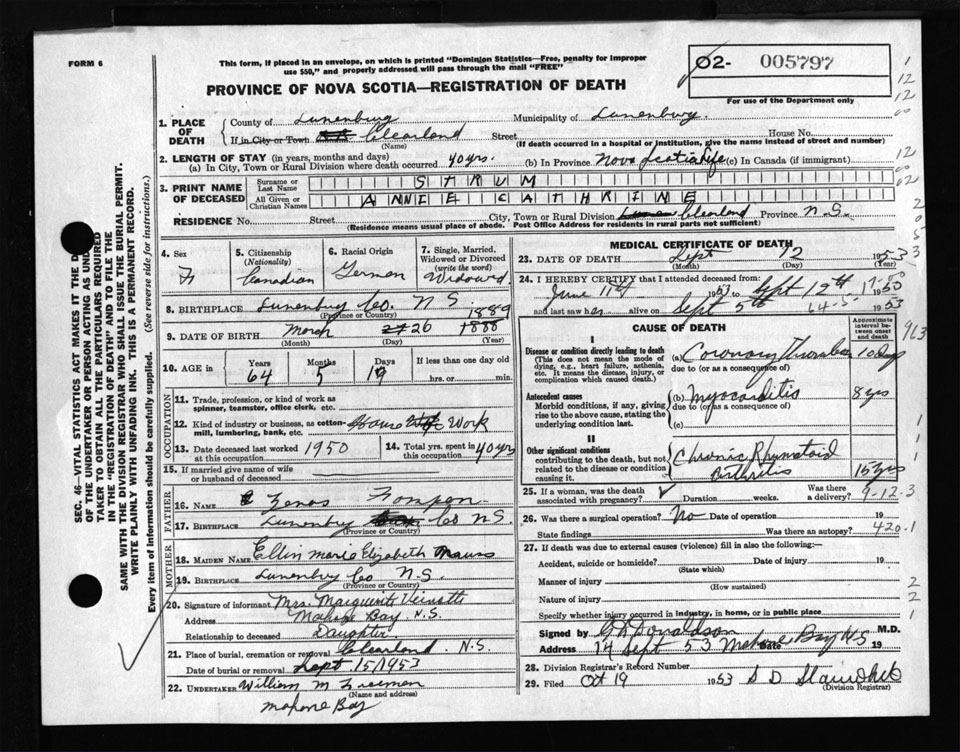 FORM 6
This form, if placed in an envelope, on which is printed "Dominion Statistics—Free, penalty for improper
use $50," and properly addressed will pass through the mail "FREE"
O2- 005797
For use of the Department only
PROVINCE OF NOVA SCOTIA—REGISTRATION OF DEATH
1. PLACE OF DEATH
County of Lunenburg Municipality of Lunenburg
If in City or Town Clearland Street House No.
(Name) (If death occurred in a hospital or institution, give the name instead of street and number)
2. LENGTH OF STAY (in years, months and days)
(a) In City, Town or Rural Division where death occurred 40 yrs. (b) In Province Nova Scotia Life (c) In Canada (if immigrant)
3. PRINT NAME OF DECEASED
Surname or Last Name STRUM
All Given or Christian Names ANNIE CATHRINE
RESIDENCE No. Street City, Town or Rural Division Clearland Province N.S.
(Residence means usual place of abode. Post Office Address for residents in rural parts not sufficient)
4. Sex F
5. Citizenship (Nationality) Canadian
6. Racial Origin German
7. Single, Married, Widowed or Divorced (write the word) Widowd
8. BIRTHPLACE Lunenburg Co. N S
(Province or Country)
1889
9. DATE OF BIRTH March 26 1888
(Month) (Day) (Year)
10. AGE in Years 64 Months 5 Days 19 If less than one day old
hrs. or min.
OCCUPATION
11. Trade, profession, or kind of work as spinner, teamster, office clerk, etc.
12. Kind of industry or business, as cotton-mill, lumbering, bank, etc. House Work
13. Date deceased last worked at this occupation 1950
14. Total yrs. spent in this occupation 40 yrs
15. If married give name of wife or husband of deceased
FATHER
16. Name Zenos
17. Birthplace Lunenbry Co N S.
MOTHER
18. MAIDEN NAME Ellin Marie Elizabeth
19. BIRTHPLACE Lunenbry Co N.S.
(Province or Country)
20. Signature of informant Mrs. Marguerite
Address Mahone Bay N.S.
Relationship to deceased Daughter
21. Place of burial, cremation or removal Clearland N.S.
Date of burial or removal Sept 15/1953
22. UNDERTAKER William M Freeman
(Name and address)
Mahone Bay
MEDICAL CERTIFICATE OF DEATH
23. DATE OF DEATH Sept 12 1953
(Month) (Day) (Year)
24. I HEREBY CERTIFY that I attended deceased from:
June 11th 1953 to Sept 12th 1953
and last saw her alive on Sept 5th 1953
CAUSE OF DEATH
Approximate interval between onset and death
I
Disease or condition directly leading to death
(This does not mean the mode of dying, e.g., heart failure, asthenia, etc. It means the disease, injury, or complication which caused death.)
(a) Coronary Thrombosis 10 Days
due to (or as a consequence of)
Antecedent causes
Morbid conditions, if any, giving rise to the above cause, stating the underlying condition last.
(b) Myocarditis 8 yrs
due to (or as a consequence of)
(c)
II
Other significant conditions
contributing to the death, but not related to the disease or condition causing it.
Chronic Rhumatoid
Arthritis 15 yrs
25. If a woman, was the death associated with pregnancy? Duration weeks. Was there a delivery?
9-12-3
26. Was there a surgical operation? No Date of operation 19
State findings Was there an autopsy?
420.1
27. If death was due to external causes (violence) fill in also the following:—
Accident, suicide or homicide? Date of injury 19
(State which)
Manner of injury
(How sustained)
Nature of injury
Specify whether injury occurred in industry, in home, or in public place
Signed by G N Donaldson M.D.
14 Sept 53 Mahone Bay N S 19
28. Division Registrar's Record Number
29. Filed Oct 19 1953
(Division Registrar)
SEC. 46—VITAL STATISTICS ACT MAKES IT THE D
OF THE UNDERTAKER OR PERSON ACTING AS UND
TAKER TO OBTAIN ALL THE PARTICULARS REQUIRED
IN THE "REGISTRATION OF DEATH" AND TO FILE THE
SAME WITH THE DIVISION REGISTRAR WHO SHALL ISSUE THE BURIAL PERMIT.
WRITE PLAINLY WITH UNFADING INK. THIS IS A PERMANENT RECORD.
Every item of information should be carefully supplied. (See reverse side for instructions.)